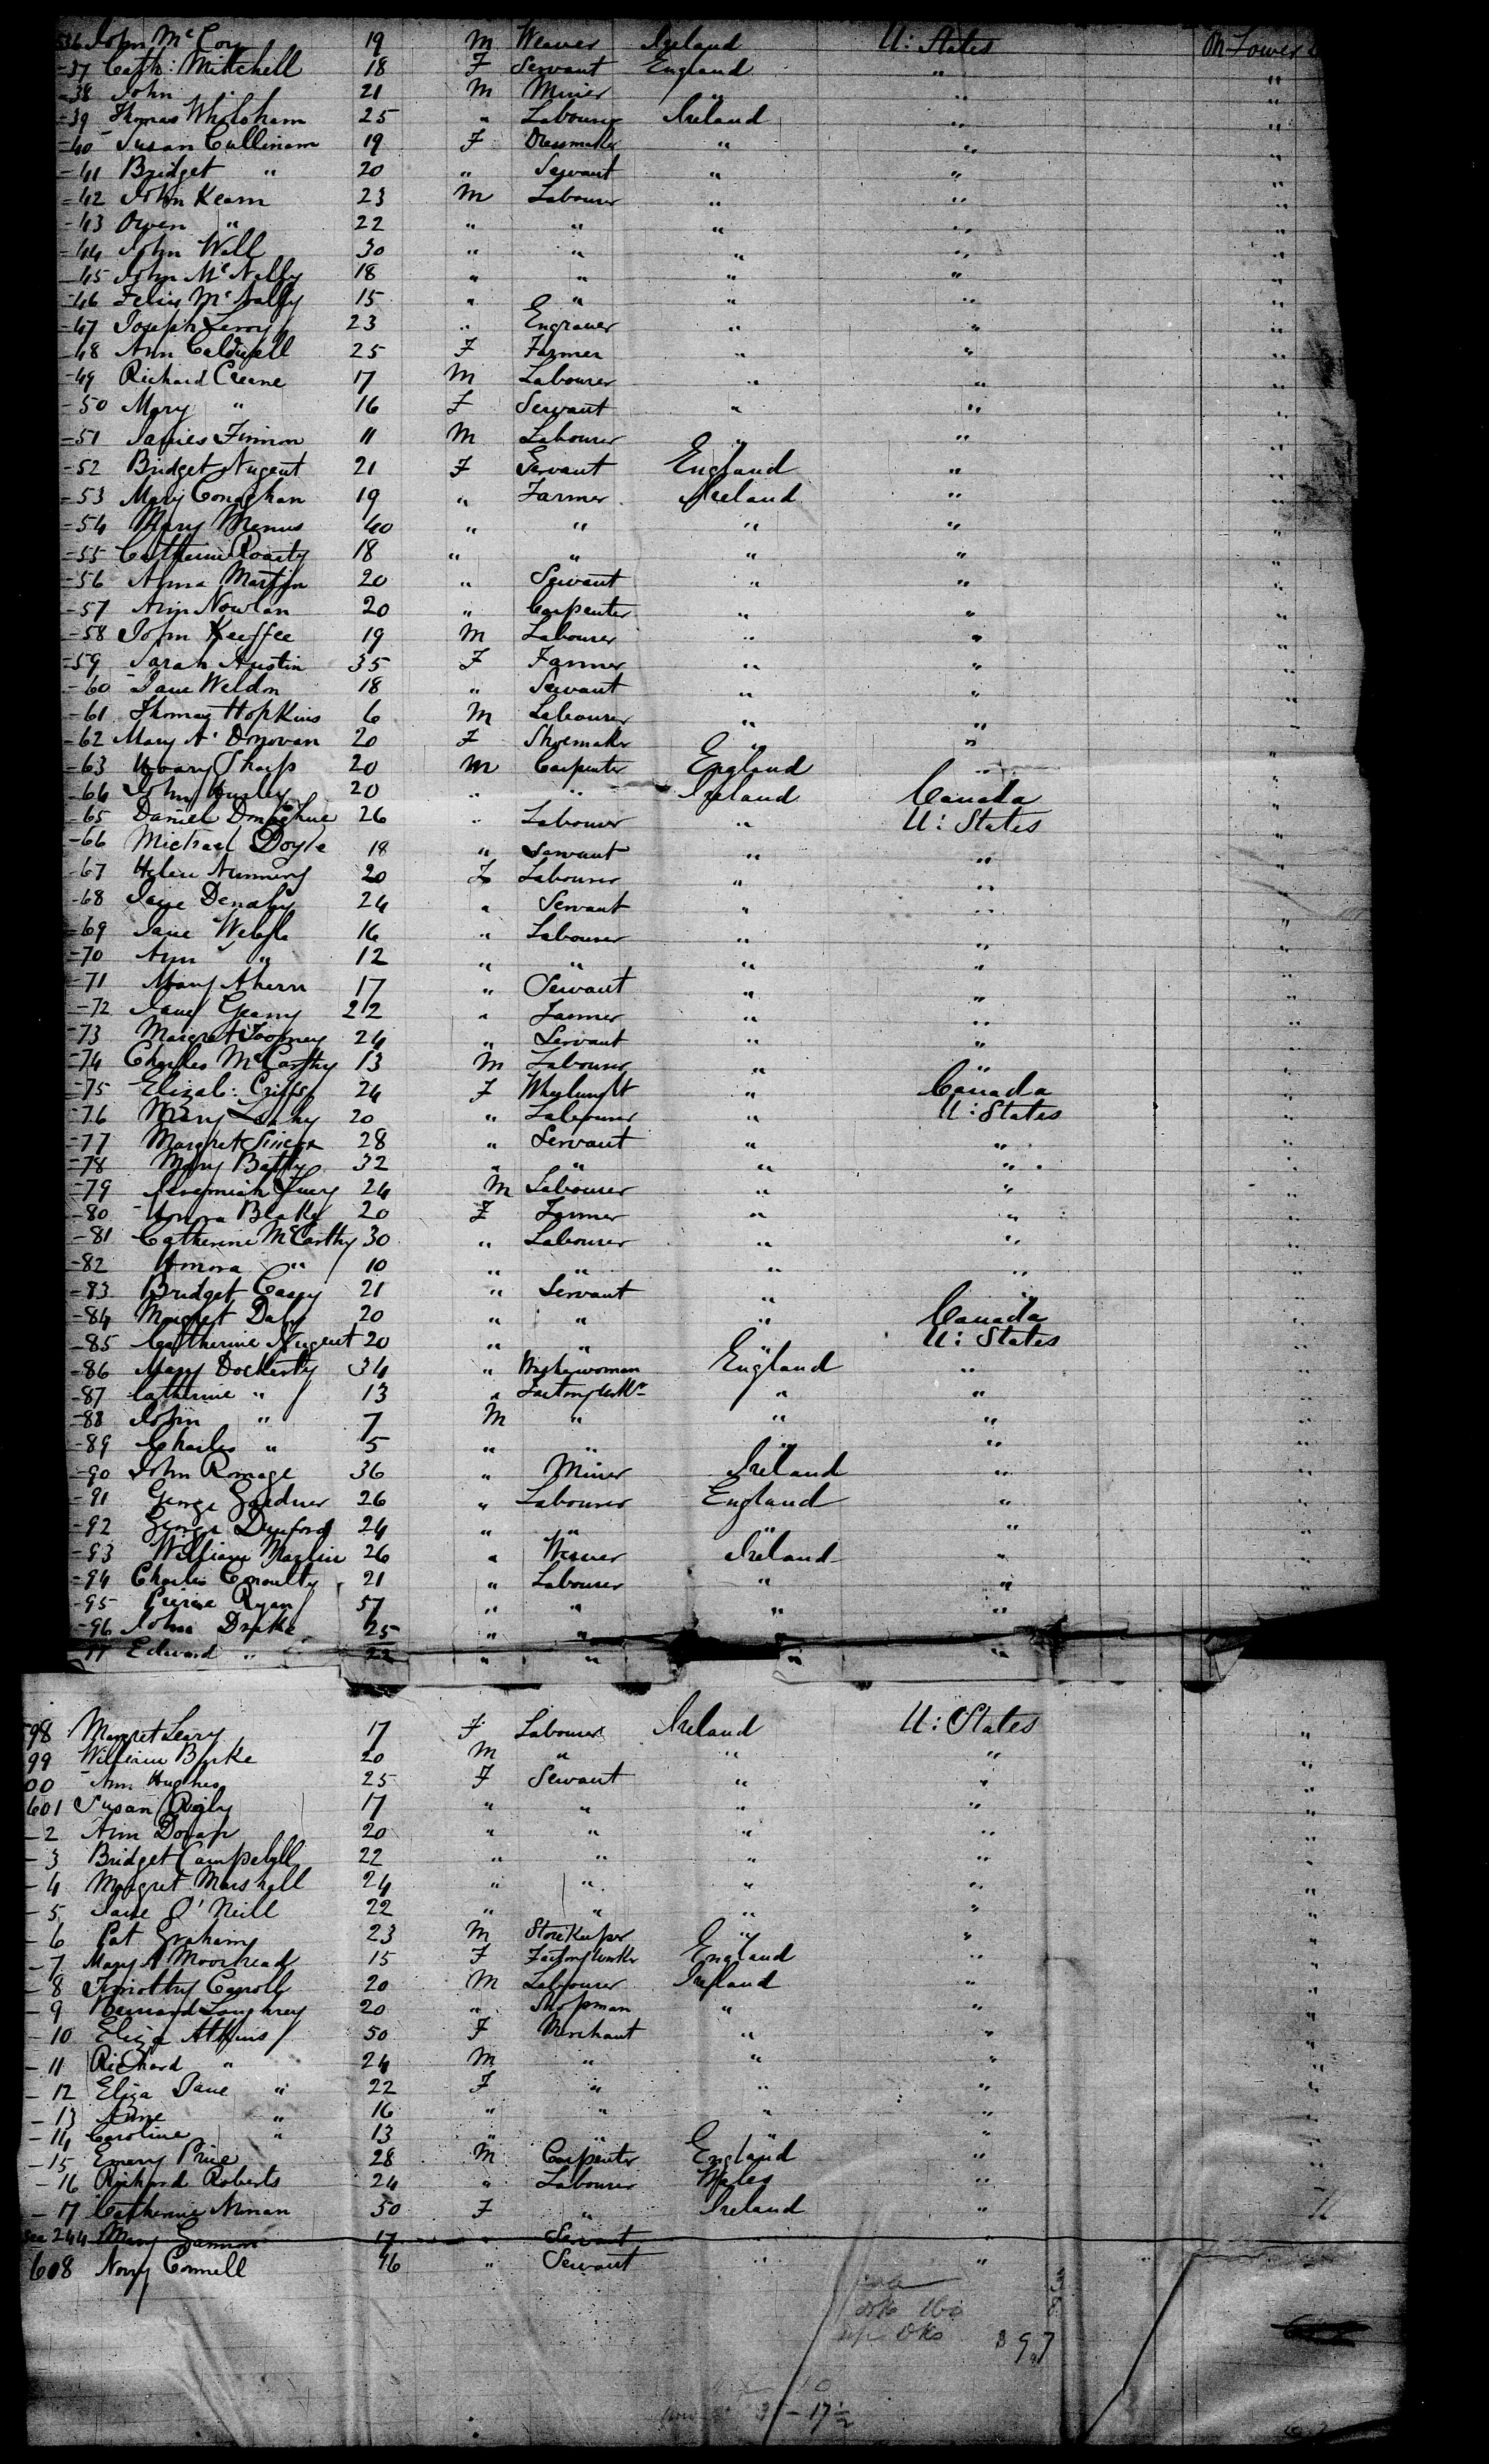 536 John McCoy 19 M Weaver Ireland U: States On Lower
-37 Cath: Mitchell 18 F Servant England " "
-38 John 21 M Miner " " "
-39 Thomas 25 " Labourer Ireland " "
-40 Susan Cullinan 19 F Dressmaker " " "
-41 Bridget " 20 " Servant " " "
-42 John Kearn 23 M Labourer " " "
-43 Owen " 22 " " " " "
-44 John Wall 30 " " " " "
-45 John McNally 18 " " " " "
-46 Felix McNally 15 " " " " "
-47 Joseph Leroy 23 " Engraver " " "
-48 Ann Caldwell 25 F Farmer " " "
-49 Richard Creane 17 M Labourer " " "
-50 Mary " 16 F Servant " " "
-51 James Finnon 11 M Labourer " " "
-52 Bridget Nugent 21 F Servant England " "
-53 Mary Conaghan 19 " Farmer Ireland " "
-54 Mary Menus 40 " " " " "
-55 Catherine Roarty 18 " " " " "
-56 Anna Martin 20 " Servant " " "
-57 Ann Nowlan 20 " Carpenter " " "
-58 John Keeffee 19 M Labourer " " "
-59 Sarah Austin 35 F Farmer " " "
-60 Jane Weldon 18 " Servant " " "
-61 Thomas Hopkins 6 M Labourer " " "
-62 Mary A' Donovan 20 F Shoemaker " " "
-63 Sharp 20 M Carpenter England " "
-64 John Hurley 20 " " Ireland Canada "
-65 Daniel Donoghue 26 " Labourer " U: States "
-66 Michael Doyle 18 " Servant " " "
-67 Helen Nunnery 20 F Labourer " " "
-68 Jane Denahy 24 " Servant " " "
-69 Jane 16 " Labourer " " "
-70 Ann " 12 " " " " "
-71 Mary Ahern 17 " Servant " " "
-72 Jane Geany 22 " Farmer " " "
-73 Margret Toomey 24 " Servant " " "
-74 Charles McCarthy 13 M Labourer " " "
-75 Elizab: 24 F Wheelwright " Canada "
-76 Mary Leahy 20 " Labourer " U: States "
-77 Margret 28 " Servant " " "
-78 Mary Batty 32 " " " " "
-79 Jeremiah Lucy 24 M Labourer " " "
-80 Honora Blake 20 F Farmer " " "
-81 Catherine McCarthy 30 " Labourer " " "
-82 Honora " 10 " " " " "
-83 Bridget Casey 21 " Servant " " "
-84 Margret Daly 20 " " " Canada "
-85 Catherine Nugent 20 " " " U: States "
-86 Mary Dockerty 34 " Washerwoman England " "
-87 Catherine " 13 " Factory Wkr " " "
-88 John " 7 M " " " "
-89 Charles " 5 " " " " "
-90 John Romage 36 " Miner Ireland " "
-91 George Gardner 26 " Labourer England " "
-92 George Dunford 24 " " " " "
-93 William Maglin 26 " Weaver Ireland " "
-94 Charles Conoulty 21 " Labourer " " "
-95 Pierce Ryan 57 " " " " "
-96 John Drake 25 " " " " "
-97 Edward " 22 " " " "
598 Margret Leary 17 F Labourer Ireland U: States "
99 William Burke 20 M " " " "
00 Ann Hughes 25 F Servant " " "
601 Susan Rigly 17 " " " " "
-2 Ann Doran 20 " " " " "
-3 Bridget Campbell 22 " " " " "
-4 Margret Marshall 24 " " " " "
-5 Jane O'Neill 22 " " " " "
-6 Pat Graham 23 M Storekeeper " " "
-7 Mary A Moorhead 15 F Factory worker England " "
-8 Timothy Carroll 20 M Labourer Ireland " "
-9 Bernard Loughrey 20 " Shopman " " "
-10 Eliza Atkins 50 F Merchant " " "
-11 Richard " 24 M " " " "
-12 Eliza Jane " 22 F " " " "
-13 Anne " 16 " " " " "
-14 Caroline " 13 " " " " "
-15 Emery Price 28 M Carpenter England " "
-16 Richard Roberts 24 " Labourer Wales " "
-17 Catherine Ninan 50 F " Ireland " "
See 244 Mary Gannon 17 " Servant " "
608 Nory Connell 16 " Servant " "
3
8
897
- 17½